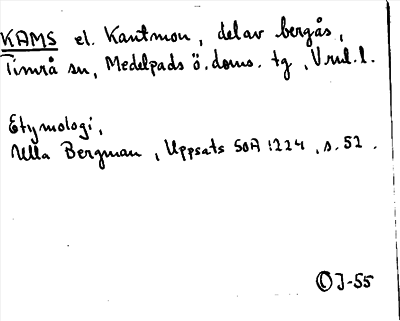 KAMS el. Kantmon, del av bergås,
Timrå sn, Medelpads ö. doms. tg, Vnl. l.
Etymologi,
Ulla Bergman, Uppsats SOA 1224, s. 52.
J-55